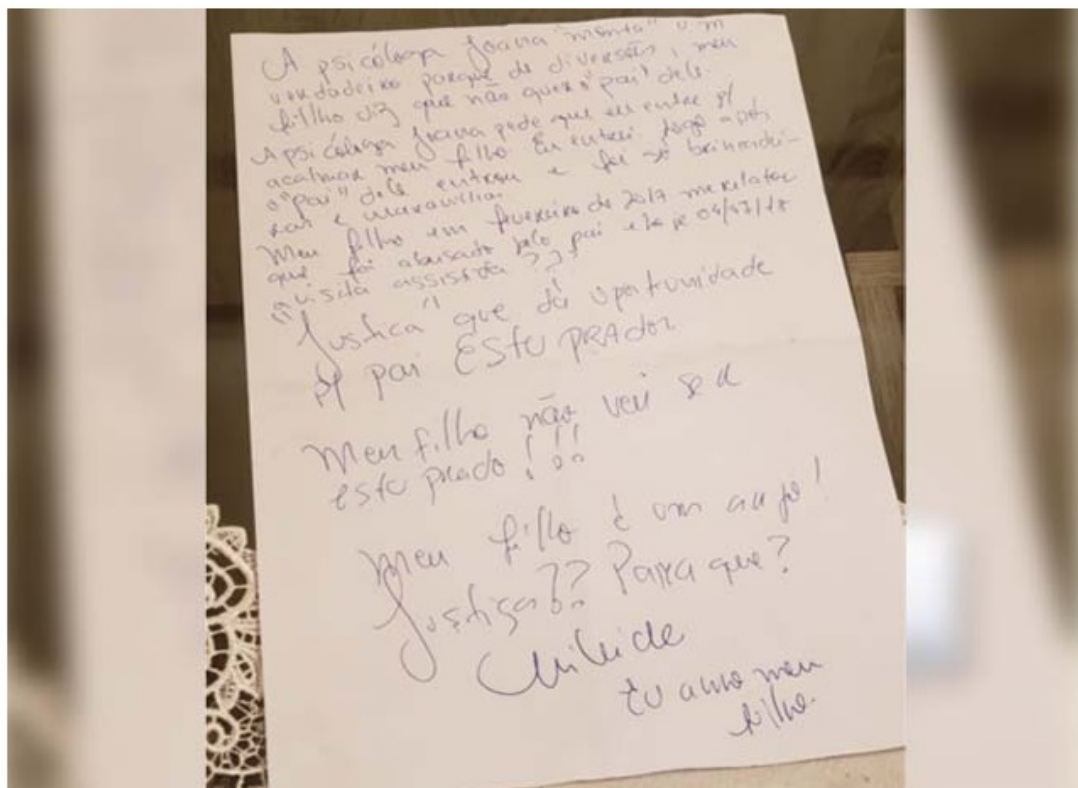 A psicóloga Joana "monta" um
verdadeiro parque de diversão, meu
filho diz que não quer o "pai" dele.
A psicóloga Joana pede que eu entre p/
acalmar meu filho Eu entrei logo após
o "pai" dele entrou e foi só brincadei-
ras e maravilhas
Meu filho em fevereiro de 2017 me relatou
que foi abusado pelo pai e hoje 04/07/18
a visita assistida???
"Justiça" que dá oportunidade
p/ pai EStUPRAdor
Meu filho não vai ser
estuprado!!!
Meu filho é um anjo!
Justiça?? Para que?
Eu amo meu
filho.